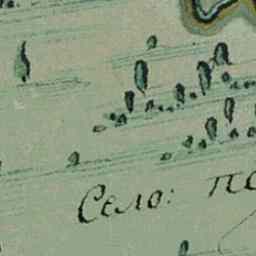 Село: по